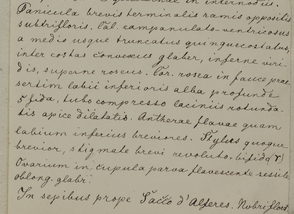 in internodus.
Panicula brevis terminalis ramis oppositis
subtrifloris. Cal. campanulato-ventricosus
a medio usque truncatus quinquecostatus,
inter costas convexus glaber, inferne viri-
dis, superne roseus. Cor. rosea in fauce prae-
sertim labii inferioris alba profunde
5 fida, tubo compresso laciniis rotunda-
tis apice dilatatis. Antherae flavae quam
labium inferius breviores. Stylus quoque
brevior, stigmate brevi revoluto bifido
Ovarium in cupula parva flavescente sessile
oblong. glabr.
In sepibus prope d'Alferes. Nvbri flor.